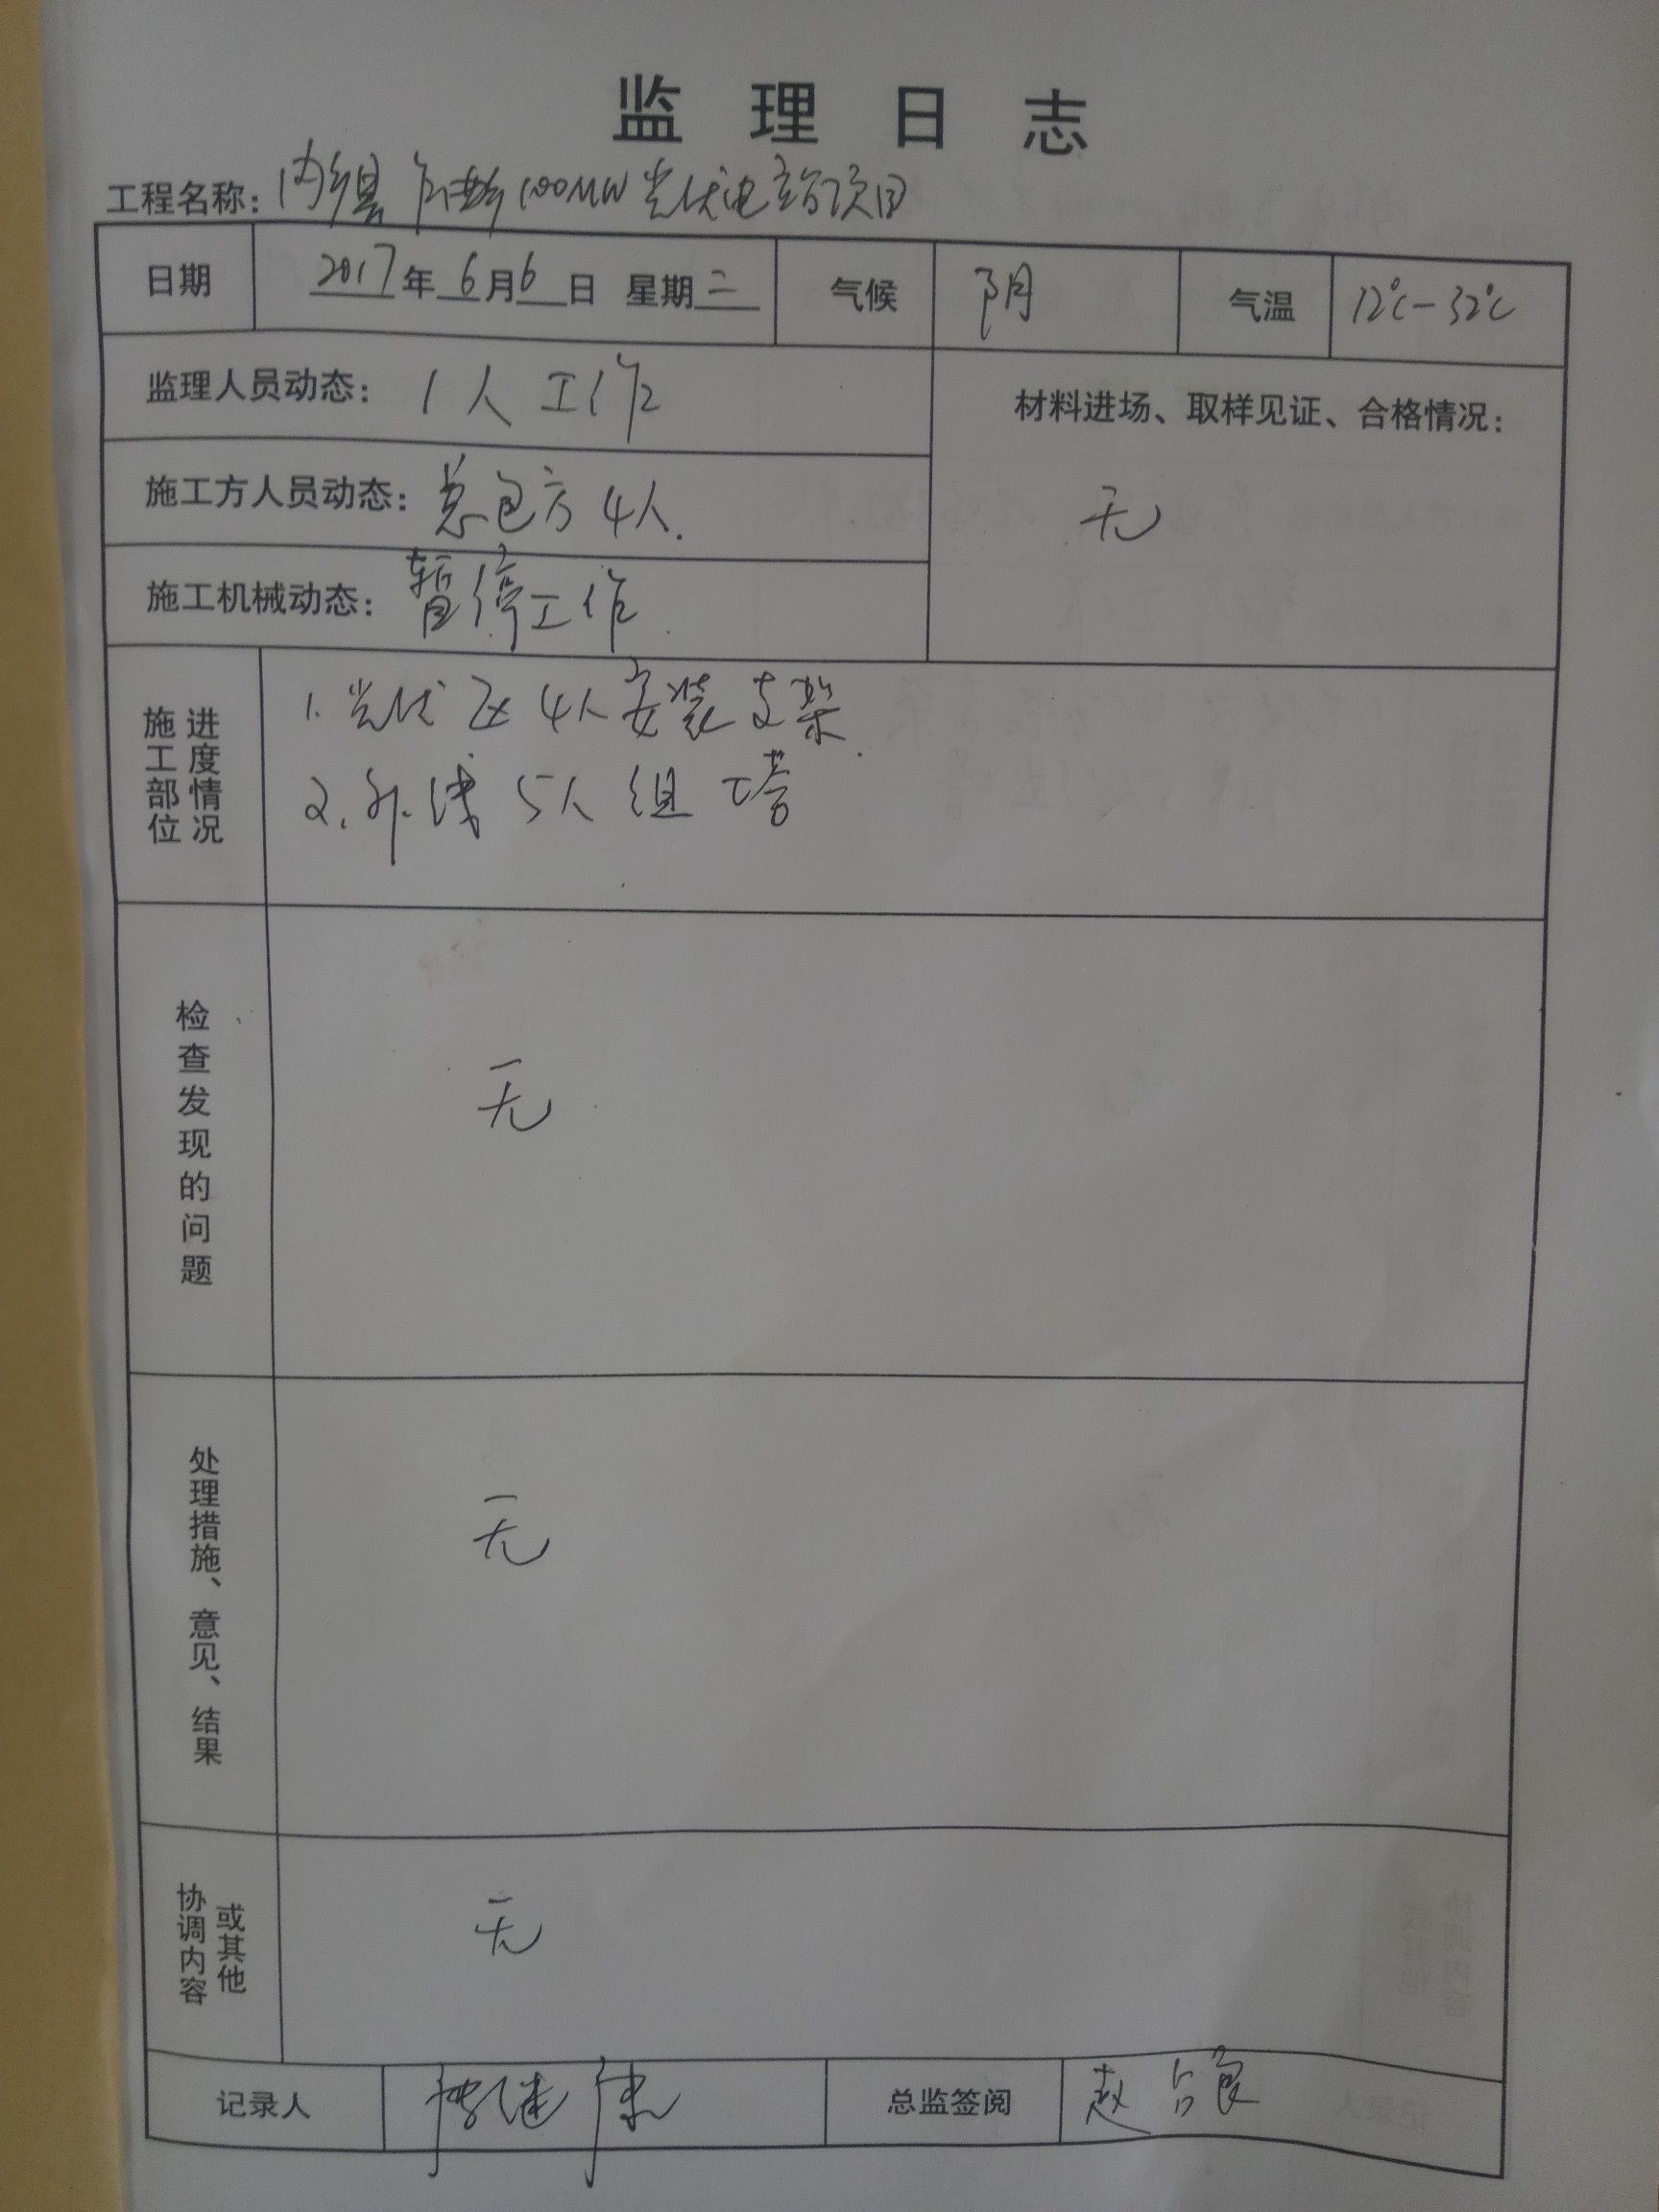 监理日志
工程名称：内乡县 100MW光伏电站项目
日期 2017年6月6日 星期二 气候 阴 气温 12℃-32℃
监理人员动态：1人工作
材料进场、取样见证、合格情况：
无
施工方人员动态：总包方4人.
施工机械动态：暂停工作.
施工部位进度情况
1.光伏区4人安装支架.
2.外线5人组塔
检查发现的问题
无
处理措施、意见、结果
无
协调内容或其他
无
记录人 总监签阅 赵